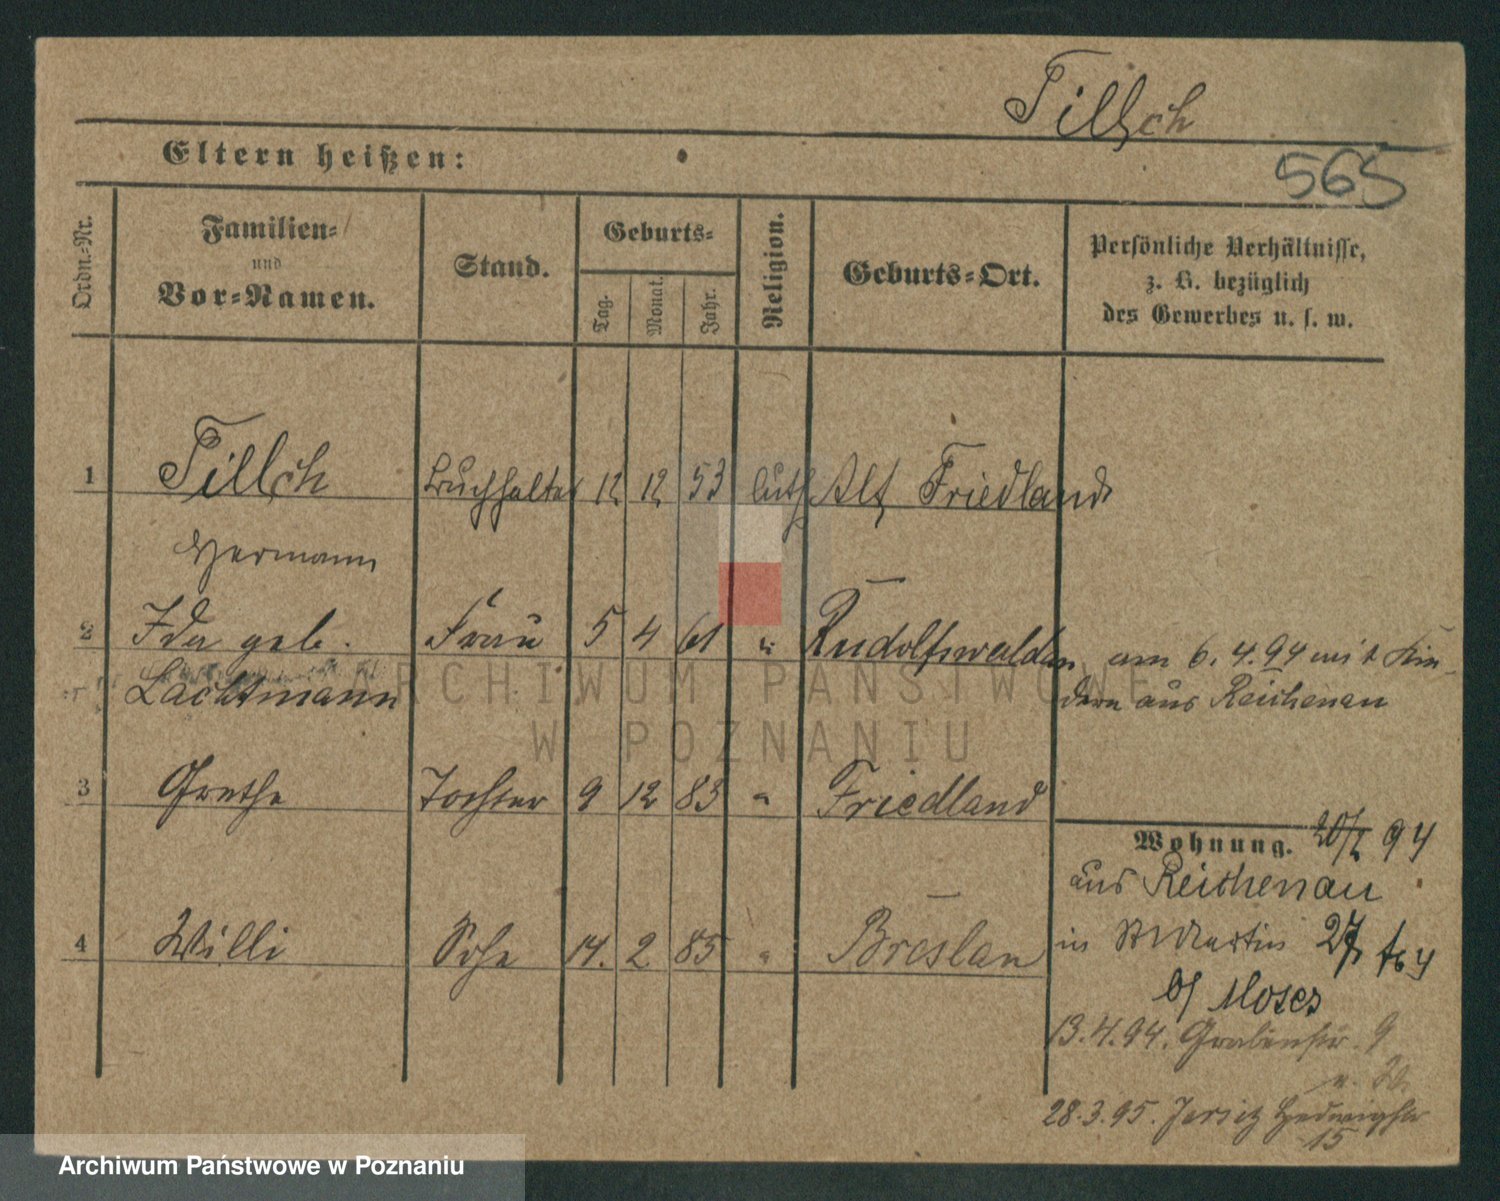 Tillsch
Eltern heißen:
565
Ordn.-Nr.
Familien-
und
Vor-Namen.
Stand.
Geburts-
Tag.
Monat.
Jahr.
Religion.
Geburts-Ort.
Persönliche Verhältnisse,
z. B. bezüglich
des Gewerbes u. s. w.
1 Tillsch Buchhalter 12 12 53 luth Alt Friedland
Hermann
2 Ida geb. Frau 5 4 61 " Rudolfswaldau am 6.4.94 mit Kin-
Lachtmann dern aus Reichenau
3 Grethe Tochter 9 12 83 " Friedland
Wohnung. 94
aus Reichenau
4 Willi Sohn 14. 2 85 " Breslau
in St Martin 27
b/ Moses
13.4.94. Grabenstr. 9
28.3.95. Jersitz Hedwigstr
15
ARCHIWUM PAŃSTWOWE
W POZNANIU
Archiwum Państwowe w Poznaniu